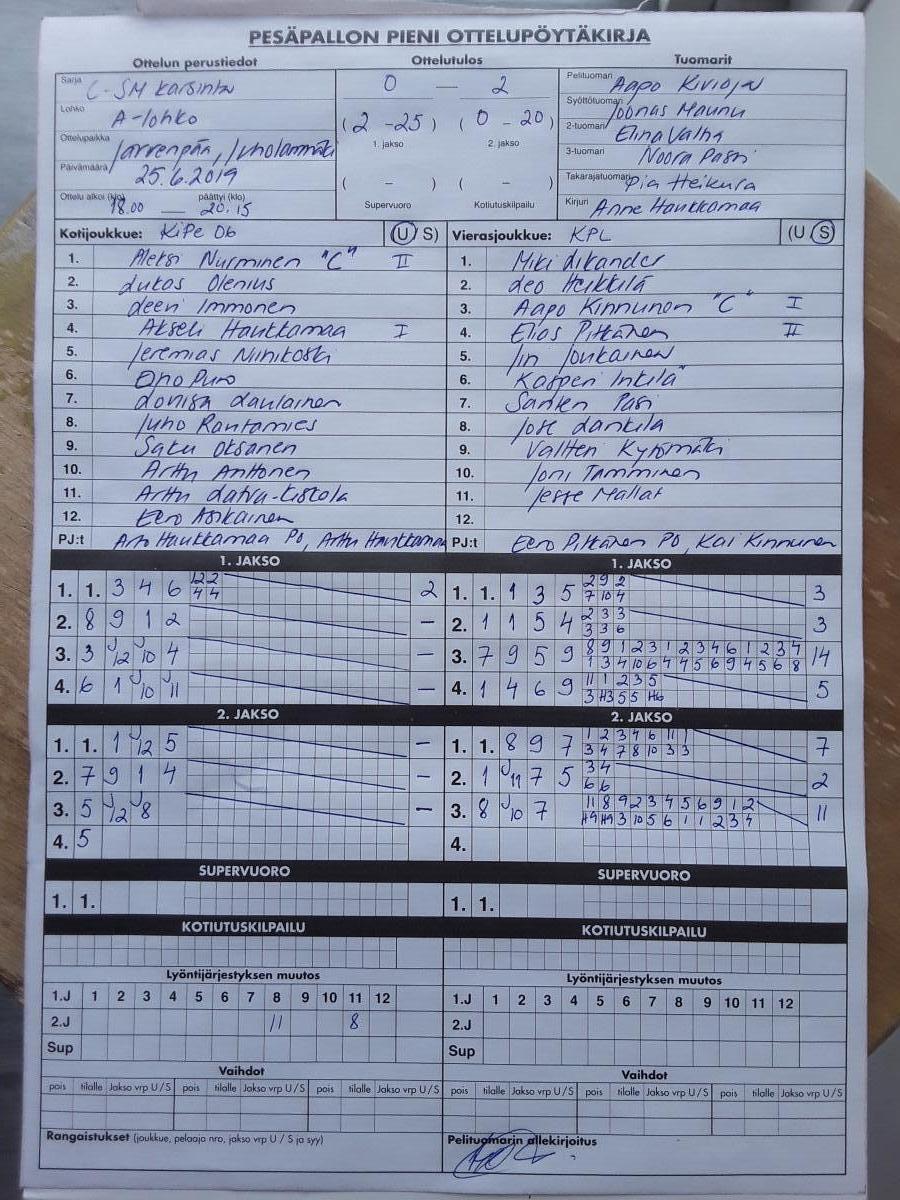 PESÄPALLON PIENI OTTELUPÖYTÄKIRJA
Ottelun perustiedot Ottelutulos Tuomarit
Sarja C-SM karsinta
Lohko A-lohko
Ottelupaikka Järvenpää,
Päivämäärä 25.6.2019
Ottelu alkoi (klo) 18.00 — päättyi (klo) 20.15
0 — 2
(2 - 25) (0 - 20)
1. jakso 2. jakso
( - ) ( - )
Supervuoro Kotiutuskilpailu
Pelituomari Aapo
Syöttötuomari Joonas Maunu
2-tuomari Elina Valha
3-tuomari Noora Pasri
Takarajatuomari Pia Heikura
Kirjuri Anne Haukkamaa
Kotijoukkue: KiPe 06 (U/S)
1. Aleksi Nurminen "C" II
2. Lukas Olenius
3. Leevi Immonen
4. Akseli Haukkamaa I
5. Jeremias Niinikoski
6. Ono Puro
7. Loviisa Laulainen
8. Juho Rantamies
9. Saku Oksanen
10. Arttu Anttonen
11. Arttu Latva-Kiskola
12. Eero Asikainen
PJ:t Arto Haukkamaa PJ, Arttu Haukkamaa
Vierasjoukkue: KPL (U/S)
1. Miki Likander
2. Leo Heikkilä
3. Aapo Kinnunen "C" I
4. Elias Pitkänen II
5. Jin Joukainen
6. Kasperi Inkilä
7. Santeri Pasi
8. Jose Lankila
9. Valtteri Kytömäki
10. Joni Tamminen
11. Jesse Mallat
12.
PJ:t Eero Pitkänen PJ, Kai Kinnunen
1. JAKSO
1. 1. 3 4 6 12 2 2
4 4
2. 8 9 1 2 —
3. 3 J12 J10 4 —
4. 6 1 J10 J11 —
2. JAKSO
1. 1. 1 J12 5 —
2. 7 9 1 4 —
3. 5 J12 J8 —
4. 5
SUPERVUORO
1. 1.
KOTIUTUSKILPAILU
Lyöntijärjestyksen muutos
1.J 1 2 3 4 5 6 7 8 9 10 11 12
2.J 11 8
Sup
Vaihdot
pois tilalle Jakso vrp U/S pois tilalle Jakso vrp U/S pois tilalle Jakso vrp U/S
Rangaistukset (joukkue, pelaaja nro, jakso vrp U / S ja syy)
1. JAKSO
1. 1. 1 3 5 2 9 2 3
7 10 4
2. 1 1 5 4 2 3 3 3
3 3 6
3. 7 9 5 9 8 9 1 2 3 1 2 3 4 6 1 2 3 4 14
1 3 4 10 6 4 4 5 6 9 4 5 6 8
4. 1 4 6 9 11 1 2 3 5 5
3 H3 5 5 H6
2. JAKSO
1. 1. 8 9 7 1 2 3 4 6 11 1 7
3 4 7 8 10 3 3
2. 1 J11 7 5 3 4 2
6 6
3. 8 J10 7 11 8 9 2 3 4 5 6 9 1 2 11
H9 H9 3 10 5 6 1 1 2 3 4
4.
SUPERVUORO
1. 1.
KOTIUTUSKILPAILU
Lyöntijärjestyksen muutos
1.J 1 2 3 4 5 6 7 8 9 10 11 12
2.J
Sup
Vaihdot
pois tilalle Jakso vrp U/S pois tilalle Jakso vrp U/S pois tilalle Jakso vrp U/S
Pelituomarin allekirjoitus